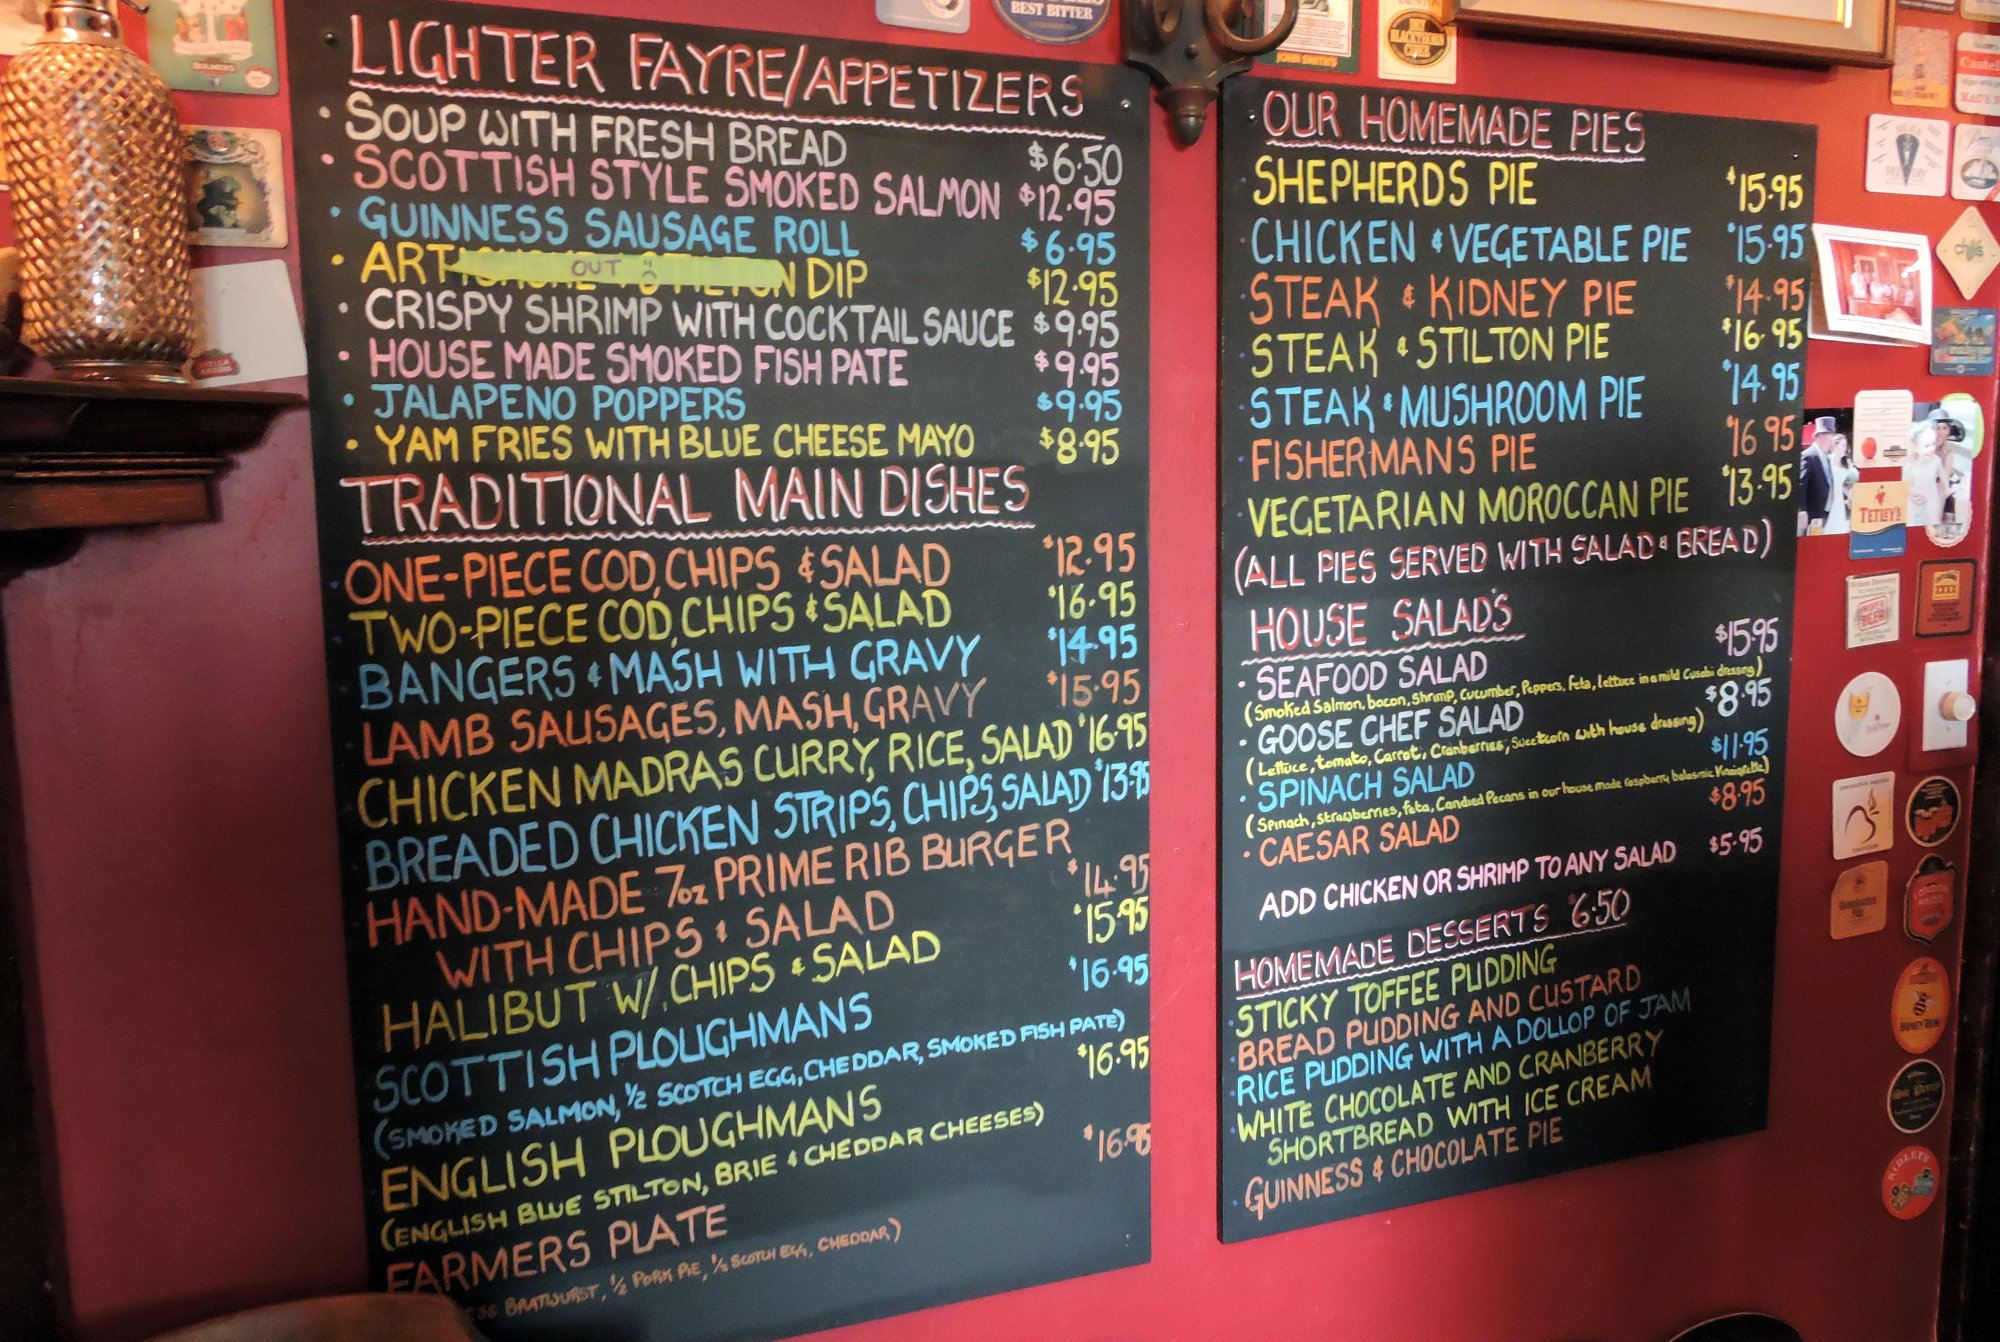 LIGHTER FAYRE/APPETIZERS
• SOUP WITH FRESH BREAD $6.50
• SCOTTISH STYLE SMOKED SALMON $12.95
• GUINNESS SAUSAGE ROLL $6.95
• DIP $12.95
OUT
• CRISPY SHRIMP WITH COCKTAIL SAUCE $9.95
• HOUSE MADE SMOKED FISH PATE $9.95
• JALAPENO POPPERS $9.95
• YAM FRIES WITH BLUE CHEESE MAYO $8.95
TRADITIONAL MAIN DISHES
ONE-PIECE COD, CHIPS & SALAD $12.95
TWO-PIECE COD, CHIPS & SALAD $16.95
BANGERS & MASH WITH GRAVY $14.95
LAMB SAUSAGES, MASH, GRAVY $15.95
CHICKEN MADRAS CURRY, RICE, SALAD $16.95
BREADED CHICKEN STRIPS, CHIPS, SALAD $13.95
HAND-MADE 7oz PRIME RIB BURGER
WITH CHIPS & SALAD $14.95
HALIBUT W/. CHIPS & SALAD $15.95
SCOTTISH PLOUGHMANS $16.95
(SMOKED SALMON, ½ SCOTCH EGG, CHEDDAR, SMOKED FISH PATE)
ENGLISH PLOUGHMANS $16.95
(ENGLISH BLUE STILTON, BRIE & CHEDDAR CHEESES)
FARMERS PLATE $16.95
BRATWURST, ½ PORK PIE, ½ SCOTCH EGG, CHEDDAR)
OUR HOMEMADE PIES
SHEPHERDS PIE $15.95
CHICKEN & VEGETABLE PIE $15.95
STEAK & KIDNEY PIE $14.95
STEAK & STILTON PIE $16.95
STEAK & MUSHROOM PIE $14.95
FISHERMANS PIE $16 95
VEGETARIAN MOROCCAN PIE $13.95
(ALL PIES SERVED WITH SALAD & BREAD)
HOUSE SALADS
• SEAFOOD SALAD $15.95
(Smoked Salmon, bacon, Shrimp, Cucumber, Peppers, Feta, lettuce in a mild Cusabi dressing)
• GOOSE CHEF SALAD $8.95
(Lettuce, tomato, Carrot, Cranberries, Sweetcorn with house dressing)
• SPINACH SALAD $11.95
(Spinach, strawberries, feta, Candied Pecans in our house made raspberry balasmic Vinaigrette)
• CAESAR SALAD $8.95
ADD CHICKEN OR SHRIMP TO ANY SALAD $5.95
HOMEMADE DESSERTS $6.50
STICKY TOFFEE PUDDING
BREAD PUDDING AND CUSTARD
RICE PUDDING WITH A DOLLOP OF JAM
WHITE CHOCOLATE AND CRANBERRY
SHORTBREAD WITH ICE CREAM
GUINNESS & CHOCOLATE PIE
BEST BITTER
JOHN SMITH'S
DRY
BLACKTHORN
CIDER
chili's
TETLEY'S
HONEY DEW
RIDLEYS